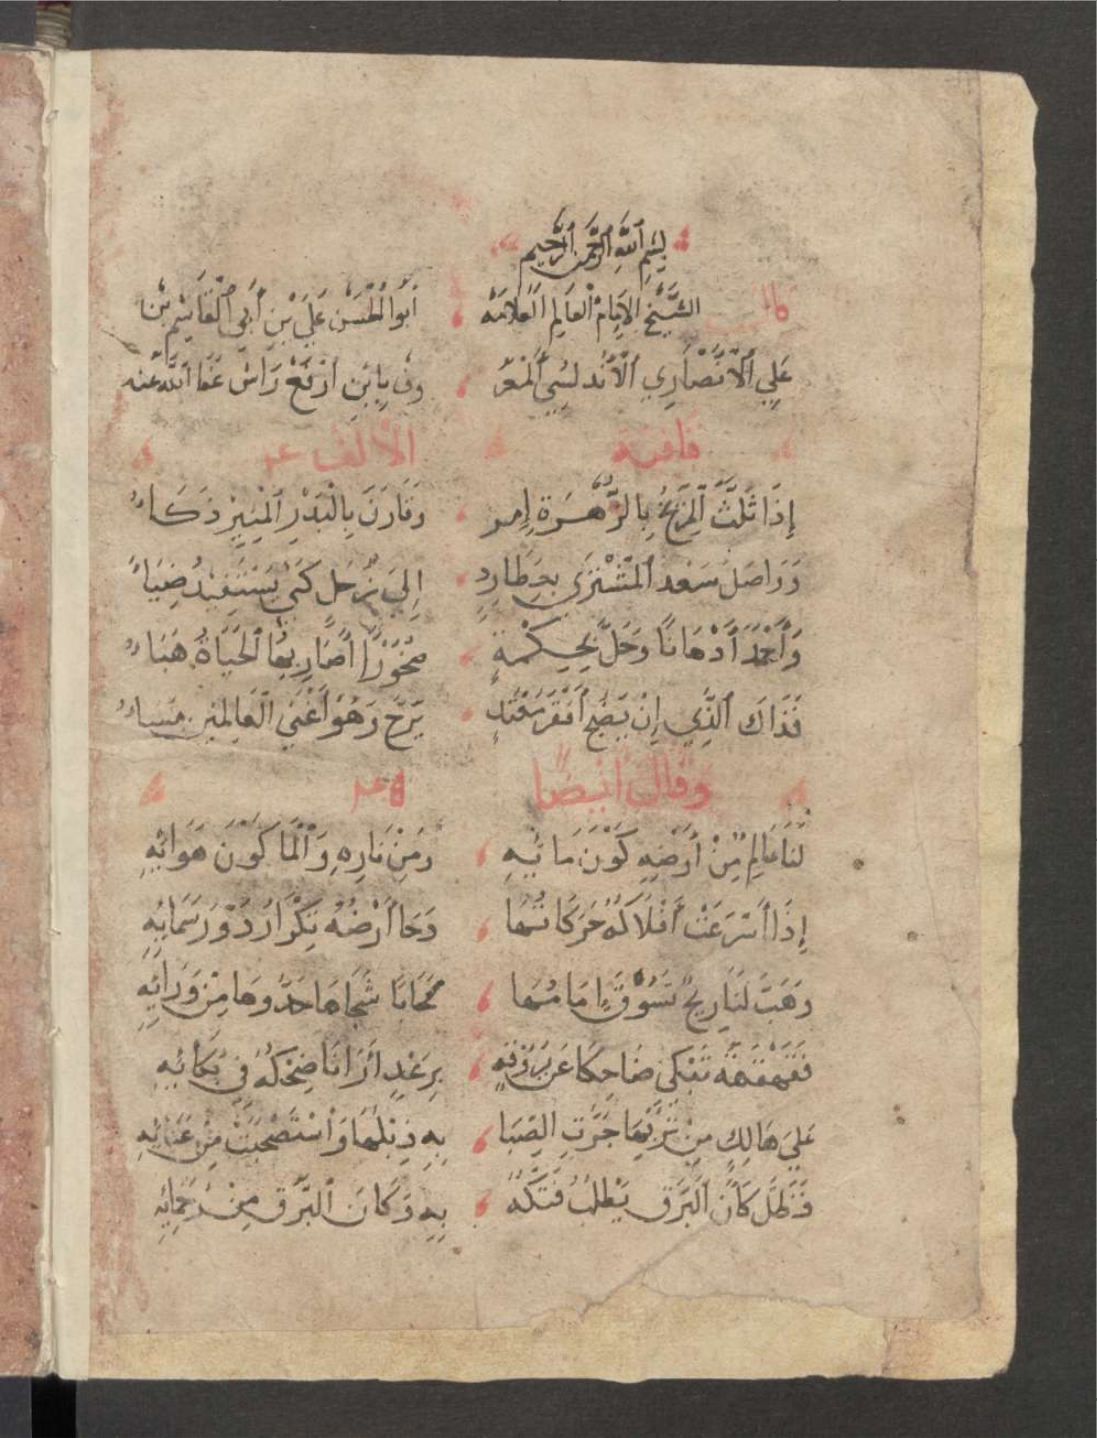 بسم الله الرحمن الرحيم
قال الشيخ الامام العالم العلامة ابو الحسن علي بن أبي القاسم بن
علي الأنصاري الأندلسي المعر وف بابن ارفع راس عفا الله عنه
قافية الالف
إذا ثلث المريخ بالزهرة وقارن بالبدر المنير ذكاء
وواصل سعد المشترى بعطارد إلى زحل كي يستفيد ضياء
وأحمد أدهانا وحل بحكمة صخورا أصاريها الحياة هباء
فذاك الذي إن يضح أفقر مقتد يرح وهو أغنى العالمين مساء
وقال ايضا
لنا عالم من أرضه كون مائه ومن ناره والما كون هوائه
إذا أسرعت أفلاكه حركاتها دحا أرضه تكرار دور سمائه
وهبت لنا ريح تسوق امامها شجاها حدوها من ورائه
فقهقهة تفكي ضاحكا عن بروقه برعد أرانا ضحكه في بكائه
على هالك من تربها جرت الصبا به ذيلها واستصحبت من
وظل كأن البرق يطلب فتكه به وكان البرق من رحمائه